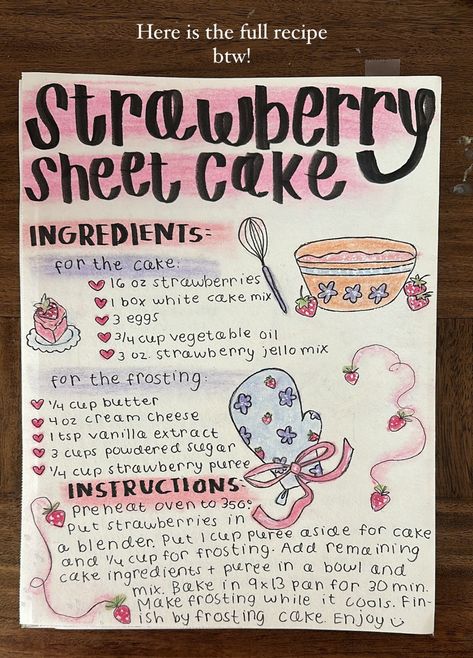 Here is the full recipe
btw!
Strawberry
Sheet Cake
INGREDIENTS:
for the cake:
16 oz strawberries
1 box white cake mix
3 eggs
3/4 cup vegetable oil
3 oz. strawberry jello mix
for the frosting:
1/4 cup butter
4 oz cream cheese
1 tsp vanilla extract
3 cups powdered sugar
1/4 cup strawberry puree
INSTRUCTIONS:
preheat oven to 350°
Put strawberries in
a blender. Put 1 cup puree aside for cake
and 1/4 cup for frosting. Add remaining
cake ingredients + puree in a bowl and
mix. Bake in 9x13 pan for 30 min.
Make frosting while it cools. Fin-
ish by frosting cake. Enjoy